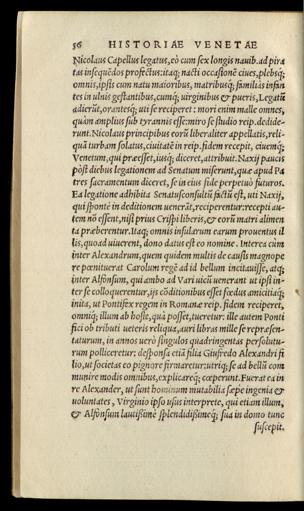 56 HISTORIAE VENETAE
Nicolaus Capellus legatus, eò cum sex longis nauib. ad pira
tas insequẽdos profectus: itaq; nacti occasionẽ ciues, plebsq;
omnis, ipsis cum natu maioribus, matribusq; familias infan
tes in ulnis gestantibus, cumq; uirginibus & pueris, Legatũ
adierũt, orantesq; uti se reciperet: mori enim malle omnes,
quàm amplius sub tyrannis esse: miro se studio reip. dedide-
runt. Nicolaus principibus eorũ liberaliter appellatis, reli-
quã turbam solatus, ciuitatẽ in reip. fidem recepit, ciuemq;
Venetum, qui præesset, iusq; diceret, attribuit. Naxij paucis
pòst diebus legationem ad Senatum miserunt, quæ apud Pa
tres sacramentum diceret, se in eius fide perpetuò futuros.
Ea legatione adhibita Senatusconsultũ factũ est, uti Naxij,
qui spontè in deditionem uenerãt, reciperentur: recepti au-
tem nõ essent, nisi prius Crispi liberis, & eorũ matri alimen
ta præberentur. Itaq; omnis insularum earum prouentus il
lis, quoad uiuerent, dono datus est eo nomine. Interea cùm
inter Alexandrum, quem quidem multis de causis magnope
re pœnituerat Carolum regẽ ad id bellum incitauisse, atq;
inter Alfonsum, qui ambo ad Varj uicũ uenerant ut ipsi in-
ter se colloquerentur, ijs cõditionibus esset fœdus amicitiaq;
inita, ut Pontifex regem in Romanæ reip. fidem reciperet,
omniq; illum ab hoste, quà posset, tueretur: ille autem Ponti
fici ob tributi ueteris reliqua, auri libras mille se repræsen-
taturum, in annos uerò singulos quadringentas persolutu-
rum polliceretur: despõsa etiã filia Giufredo Alexandri fi
lio, ut societas eo pignore firmaretur: utriq; se ad bellũ com
munire modis omnibus, explicareq; cœperunt. Fuerat ea in
re Alexander, ut sunt hominum mutabilia sæpe ingenia &
uoluntates, Virginio ipso usus interprete, qui etiam illum,
& Alfonsum lautißimè splendidißimeq; sua in domo tunc
suscepit.